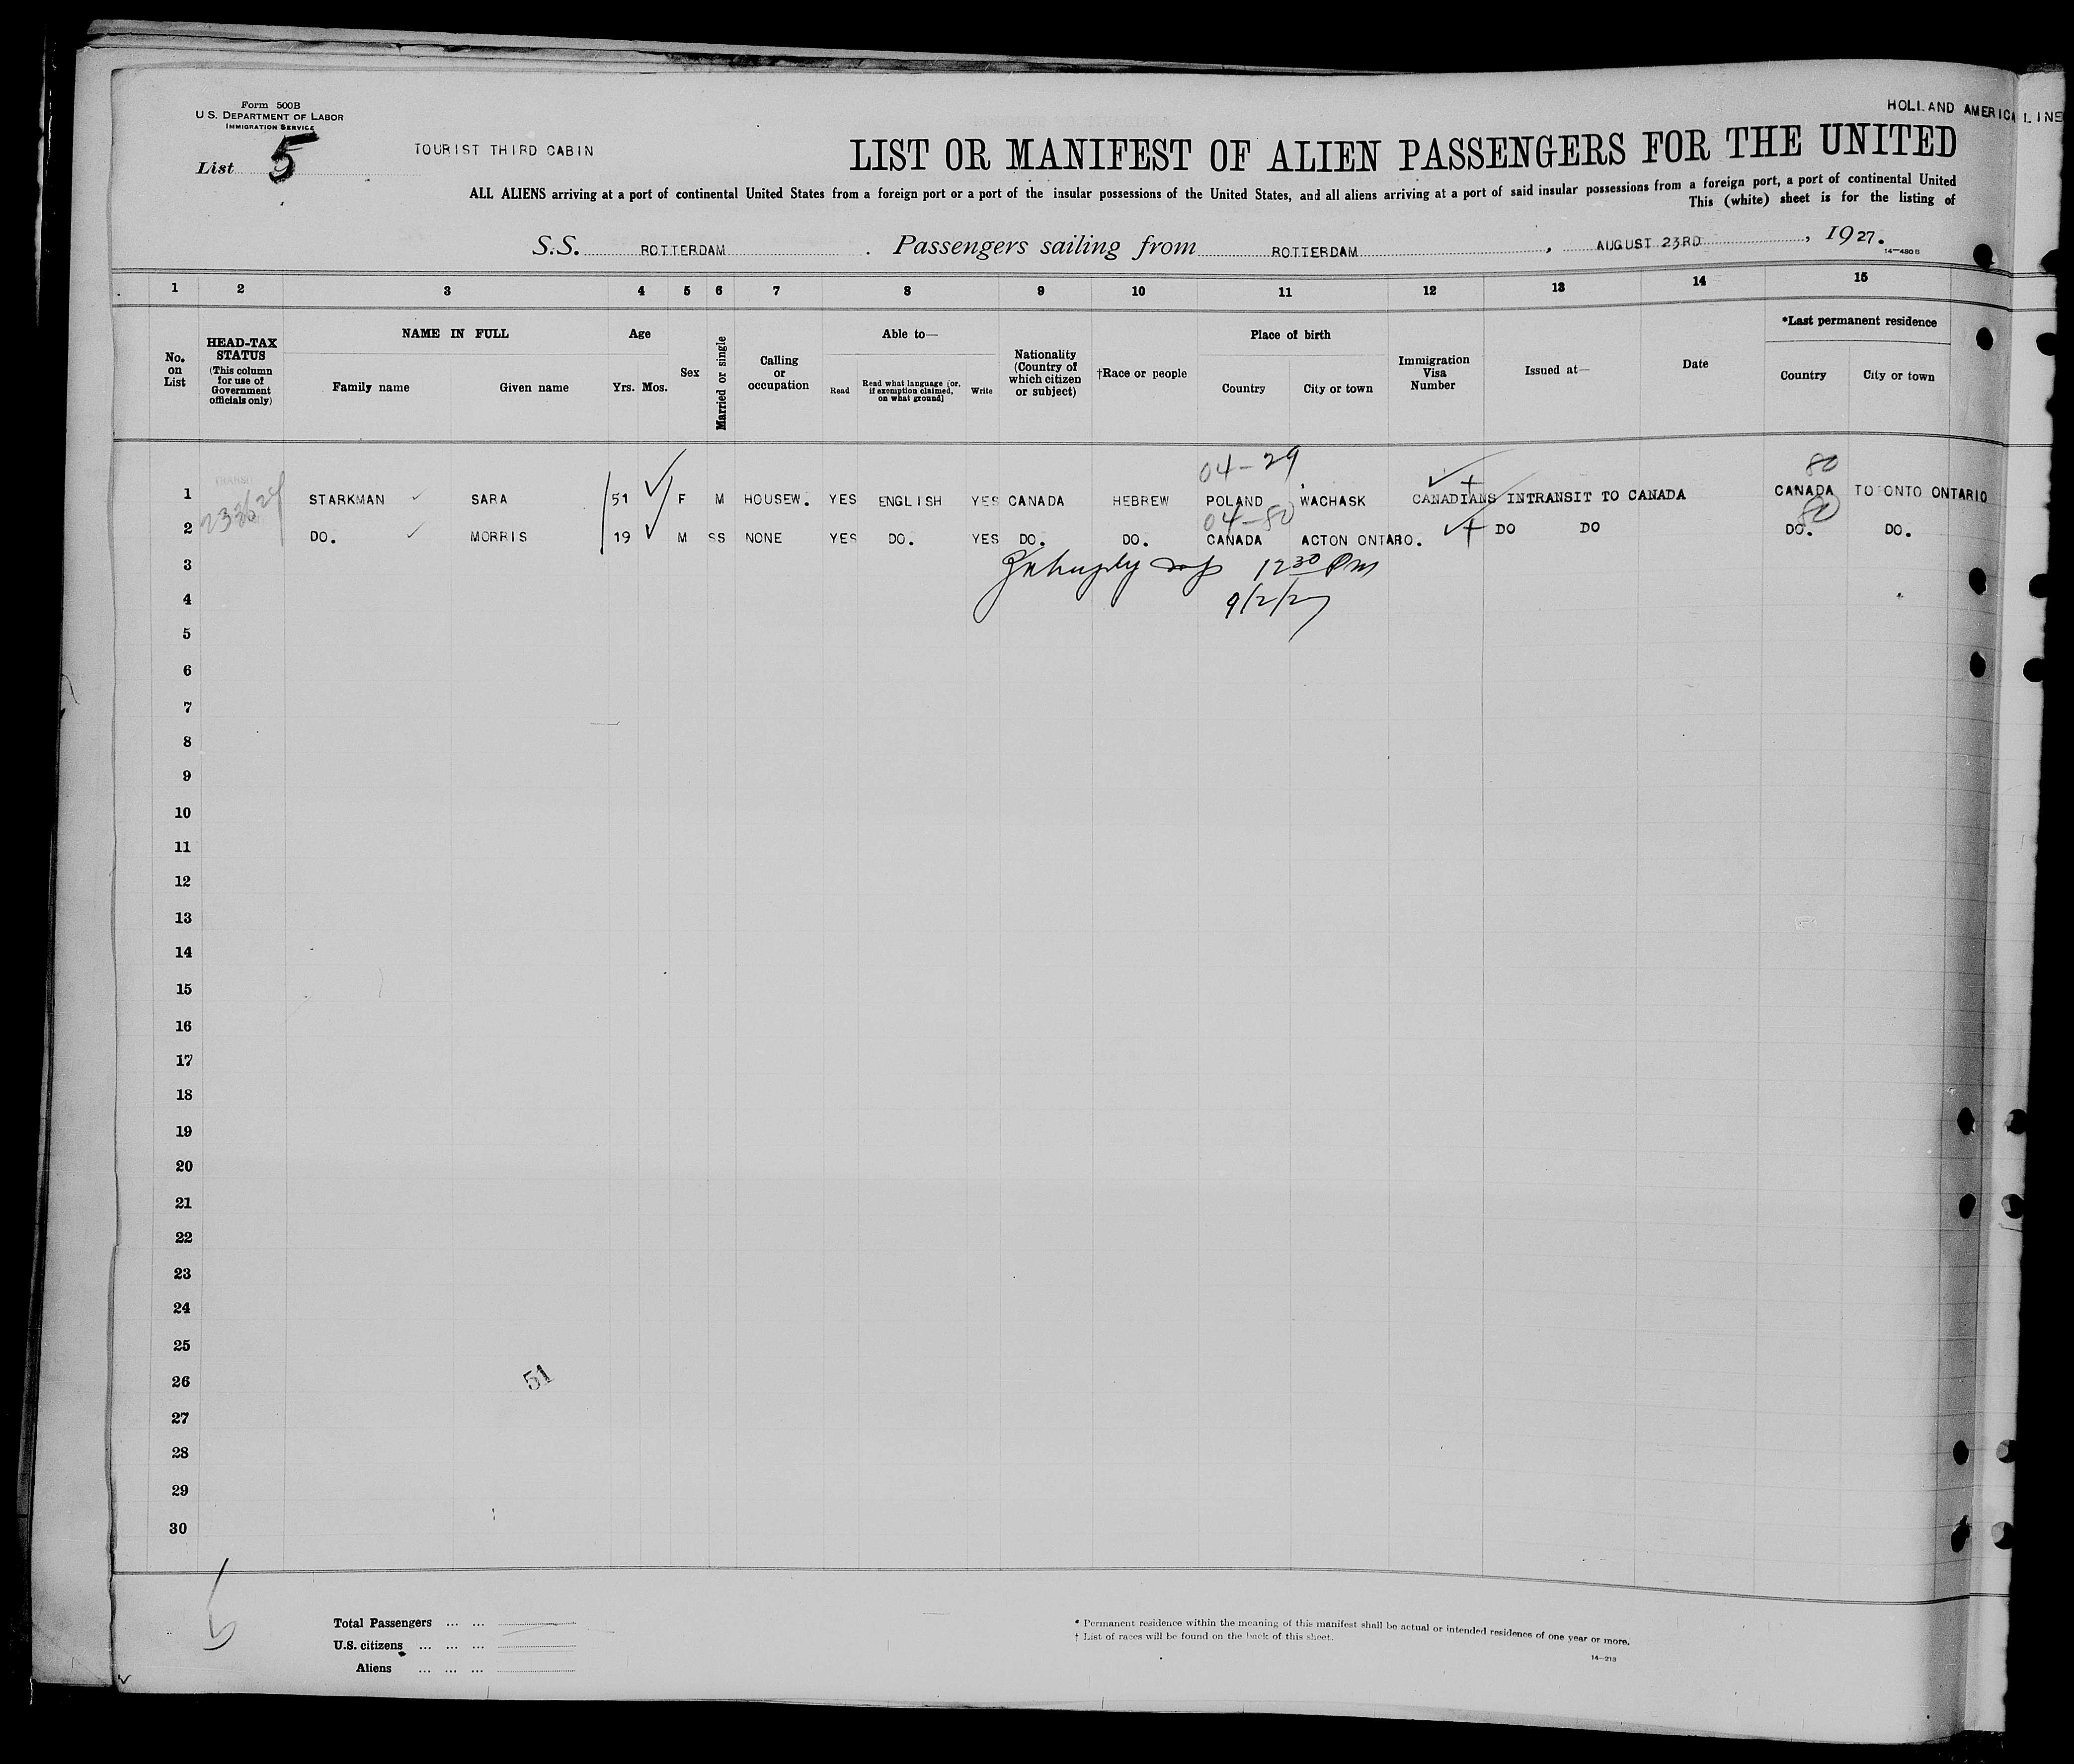 HOLLAND AMERICA LINE
Form 500B
U.S. DEPARTMENT OF LABOR
IMMIGRATION SERVICE
List 5
TOURIST THIRD CABIN
LIST OR MANIFEST OF ALIEN PASSENGERS FOR THE UNITED
ALL ALIENS arriving at a port of continental United States from a foreign port or a port of the insular possessions of the United States, and all aliens arriving at a port of said insular possessions from a foreign port, a port of continental United
This (white) sheet is for the listing of
S.S. ROTTERDAM . Passengers sailing from ROTTERDAM , AUGUST 23RD , 1927.
14—480 B
1 2 3 4 5 6 7 8 9 10 11 12 13 14 15
No. on List
HEAD-TAX STATUS
(This column for use of Government officials only)
NAME IN FULL
Family name Given name
Age
Yrs. Mos.
Sex
Married or single
Calling or occupation
Able to—
Read
Read what language (or, if exemption claimed, on what ground)
Write
Nationality (Country of which citizen or subject)
†Race or people
Place of birth
Country City or town
Immigration Visa Number
Issued at—
Date
*Last permanent residence
Country City or town
04-29 80
1 STARKMAN SARA 51 F M HOUSEW. YES ENGLISH YES CANADA HEBREW POLAND WACHASK CANADIANS INTRANSIT TO CANADA CANADA TORONTO ONTARIO
04-80 80
2 DO. MORRIS 19 M SS NONE YES DO. YES DO. DO. CANADA ACTON ONTARO. DO DO DO. DO.
3 12 30 PM
4 9/2/27
5
6
7
8
9
10
11
12
13
14
15
16
17
18
19
20
21
22
23
24
25
26
51
27
28
29
30
Total Passengers ... ...
U.S. citizens ... ... ...
Aliens ... ... ...
* Permanent residence within the meaning of this manifest shall be actual or intended residence of one year or more.
† List of races will be found on the back of this sheet.
14—213